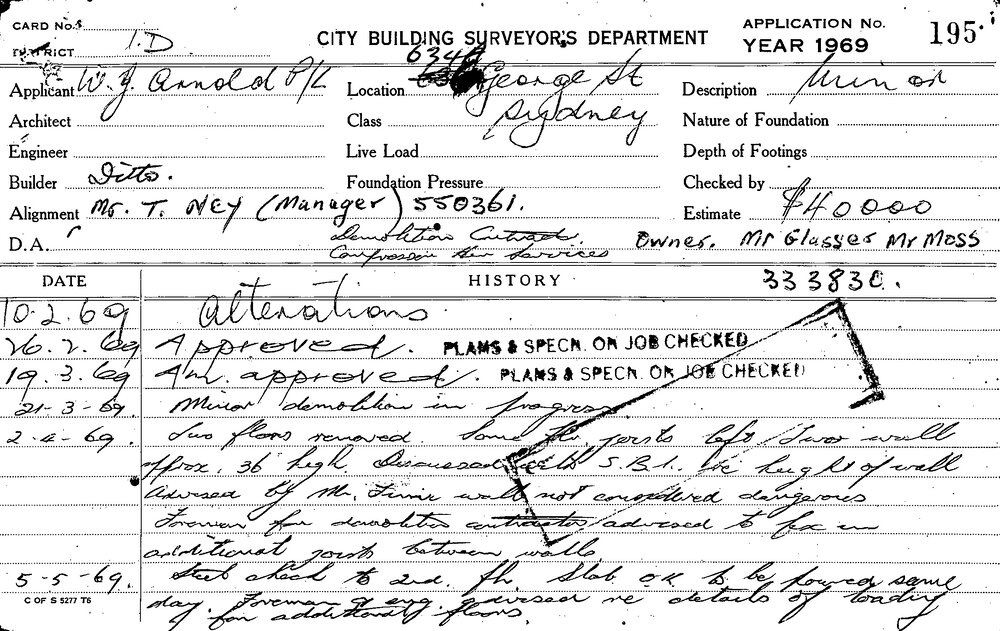 CARD No.
DISTRICT I.D
CITY BUILDING SURVEYOR'S DEPARTMENT
APPLICATION No. 195
YEAR 1969
Applicant W. J. Arnold P/L
Location 634 George St
Description Minor
Architect
Class Sydney
Nature of Foundation
Engineer
Live Load
Depth of Footings
Builder Ditto.
Foundation Pressure
Checked by
Alignment Mr. T. NEY (Manager) 550361.
Estimate $40000
D.A.
Demolition Contract.
Services
Owner. Mr Glasser Mr Moss
DATE HISTORY 333830.
10.2.69 Alterations.
26.2.69 Approved. PLANS & SPECN. ON JOB CHECKED
19.3.69 Am. approved. PLANS & SPECN. ON JOB CHECKED
21-3-69. Minor demolition in progress
2-4-69. Two floors removed. Some flr joists left. wall
approx. 36 high. Discussed with S.B.I. re height of wall
Advised by Mr. wall not considered dangerous
Foreman for demolition contractor advised to fix in
additional joists between walls
5-5-69. Steel check to 2nd. flr slab O.K to be poured same
day. Foreman & eng. advised re details of loading
for additional floors.
C OF S 5277 T6